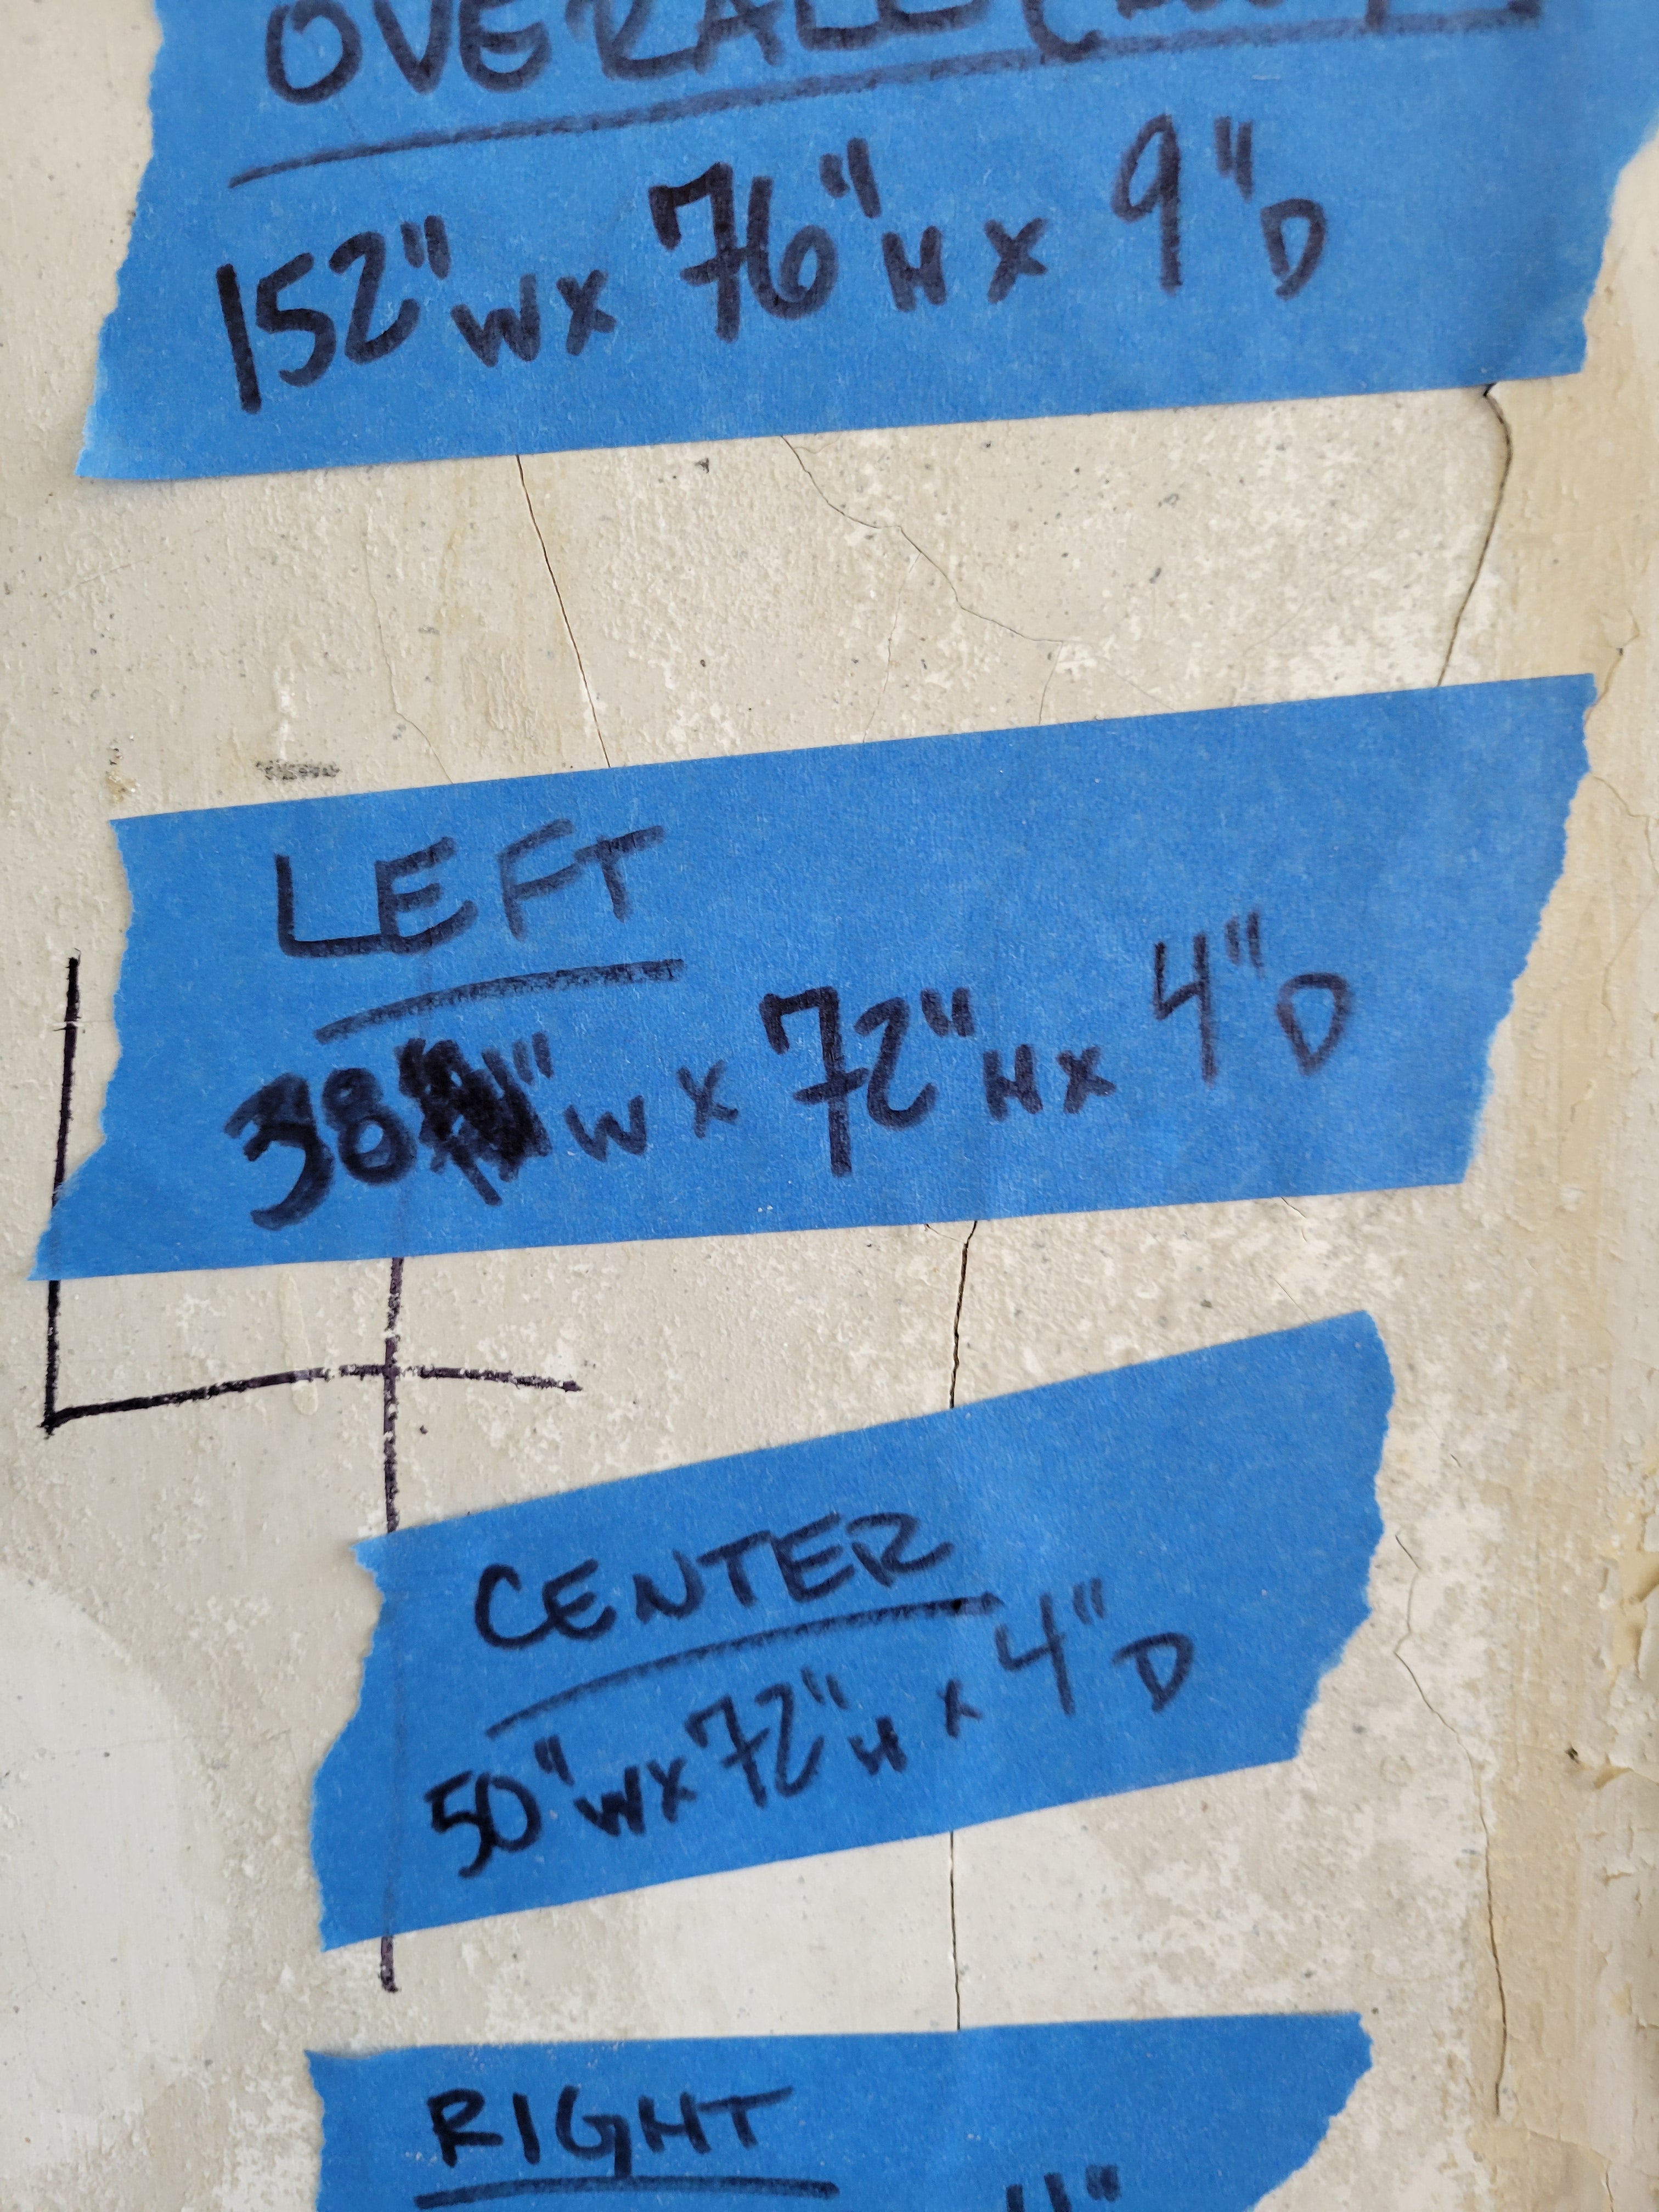 OVERALL
152"W X 76"H X 9"D
LEFT
38"W X 72"H X 4"D
CENTER
50"W X 72"H X 4"D
RIGHT